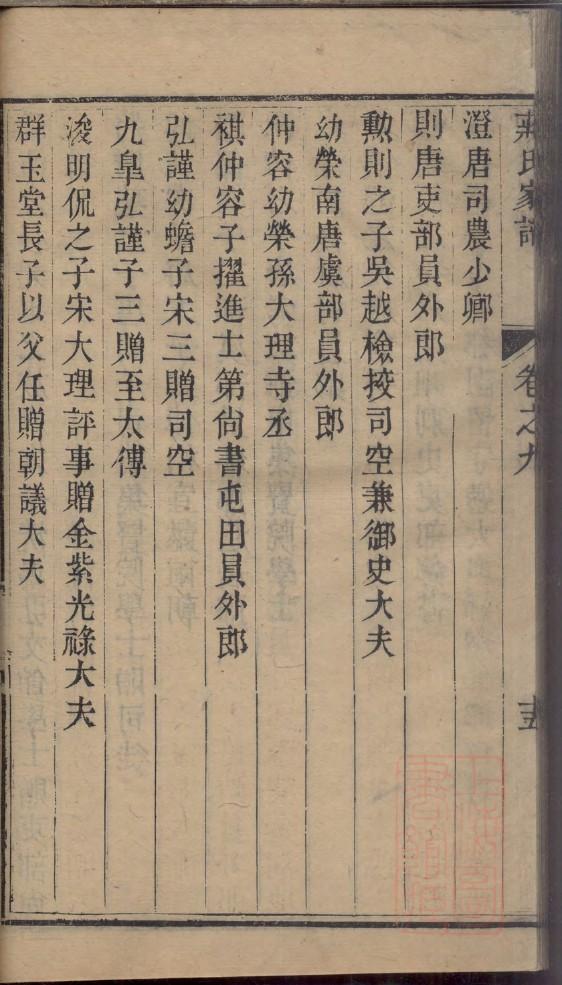 氏家譜
卷之九
十五
澄唐司農少卿
則唐吏部員外郎
勲則之子吳越檢挍司空兼御史大夫
幼榮南唐虞部員外郎
仲容幼榮孫大理寺丞
祺仲容子擢進士第尙書屯田員外郎
弘謹幼蟾子宋三贈司空
九臯弘謹子三贈至太傅
浚明侃之子宋大理評事贈金紫光祿大夫
群玉堂長子以父任贈朝議大夫